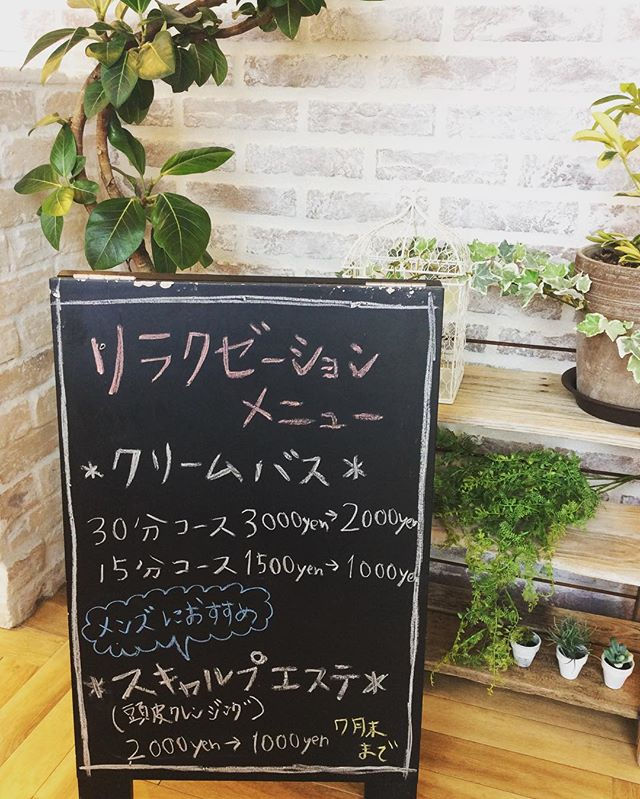 リラクゼーション
メニュー
*クリームバス*
30分コース3000yen→2000yen
15分コース1500yen→1000yen
メンズにおすすめ
*スキャルプエステ*
(頭皮クレンジング)
2000yen→1000yen
7月末
まで